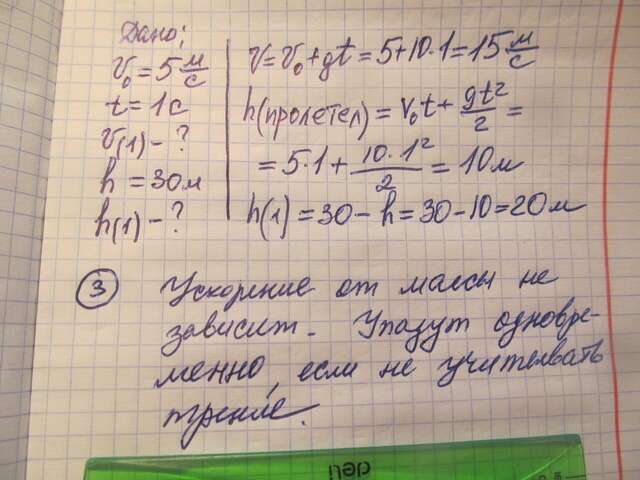 Дано:
V₀ = 5 м/с
t = 1 с
V(1) - ?
h = 30 м
h(1) - ?
V = V₀ + gt = 5 + 10·1 = 15 м/с
h(пролетел) = V₀t + gt²/2 =
= 5·1 + 10·1²/2 = 10 м
h(1) = 30 - h = 30 - 10 = 20 м
3 Ускорение от массы не
зависит. Упадут одновре-
менно, если не учитывать
трение.
deli